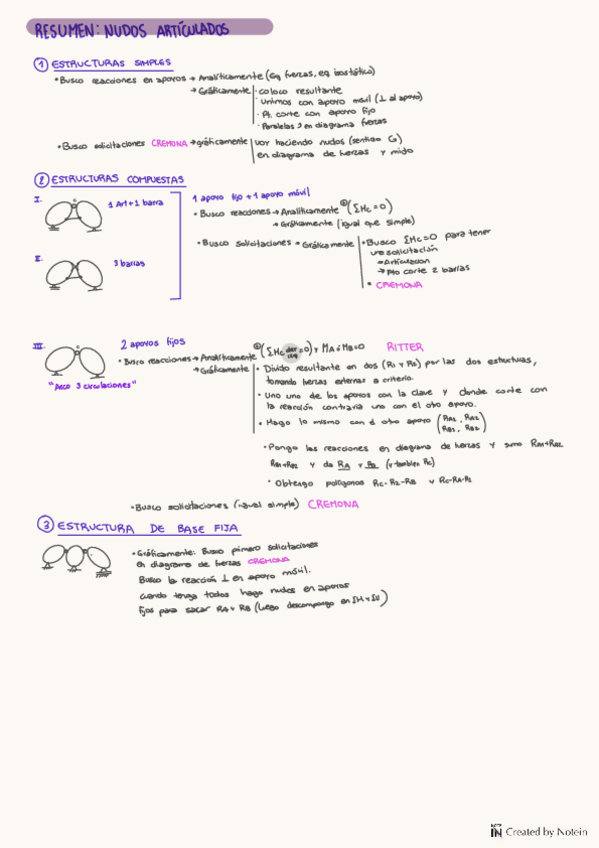 RESUMEN: NUDOS ARTÍCULADOS
① ESTRUCTURAS SIMPLES
• Busco reacciones en apoyos → Analíticamente (Eq fuerzas, eq isostático)
→ Gráficamente
· coloco resultante
· Unimos con apoyo móvil (⊥ al apoyo)
· Pt. corte con apoyo fijo
· Paralelas en diagrama fuerzas
• Busco solicitaciones CREMONA → gráficamente
voy haciendo nudos (sentido G)
en diagrama de fuerzas y mido
② ESTRUCTURAS COMPUESTAS
I.
1 Art + 1 barra
1 apoyo fijo + 1 apoyo móvil
• Busco reacciones → Analíticamente (ΣMc = 0)
→ Gráficamente (igual que simple)
II.
3 barras
• Busco solicitaciones → Gráficamente
• Busco ΣMc=0 para tener
una solicitación
→ Articulación
→ Pto corte 2 barras
• CREMONA
III.
2 apoyos fijos
"Arco 3 circulaciones"
• Busco reacciones → Analíticamente (ΣMc der izq = 0) y MA ó MB = 0 RITTER
→ Gráficamente
• Divido resultante en dos (R1 y R2) por las dos estructuras,
tomando fuerzas externas a criterio.
• Uno uno de los apoyos con la clave y donde corte con
la reacción contraria uno con el otro apoyo.
• Hago lo mismo con el otro apoyo (RA1, RA2
RB1, RB2)
• Pongo las reacciones en diagrama de fuerzas y sumo RA1+RA2
RB1+RB2 y da RA y RB (y también Rc)
• Obtengo polígonos Rc-R2-RB y Rc-RA-R1
• Busco solicitaciones (igual simple) CREMONA
③ ESTRUCTURA DE BASE FIJA
• Gráficamente: Busco primero solicitaciones
en diagrama de fuerzas CREMONA
Busco la reacción ⊥ en apoyo móvil.
cuando tenga todos hago nudos en apoyos
fijos para sacar RA y RB (luego descompongo en ΣH y ΣV)
NOTE IN Created by Notein